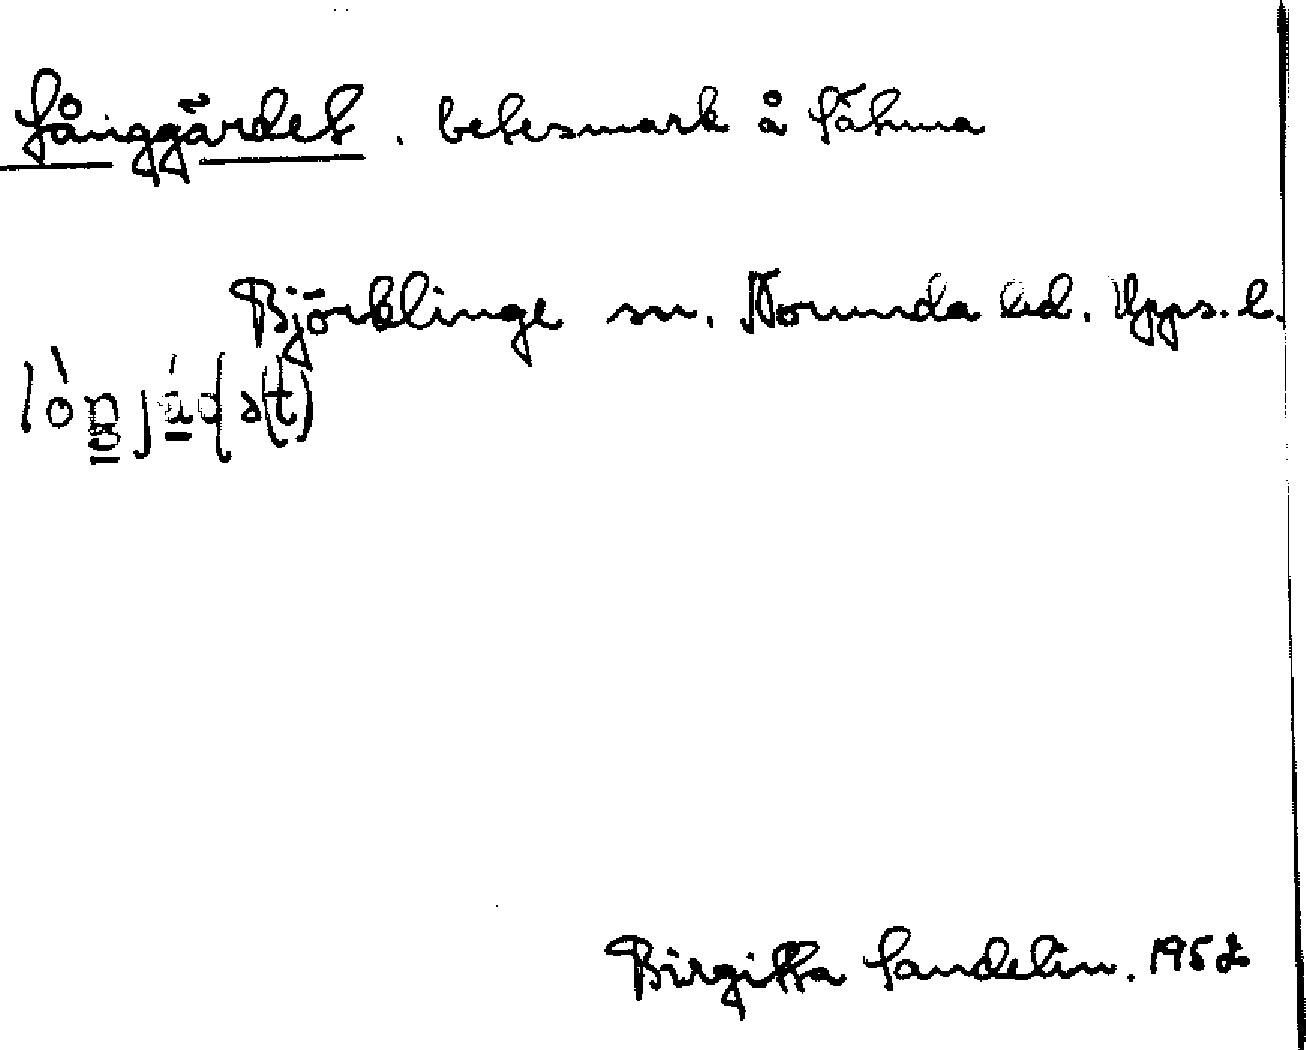 Långgärdet. betesmark å Sätuna
Björklinge sn. Norunda hd. Upps. l.
Birgitta Sandelin. 1952